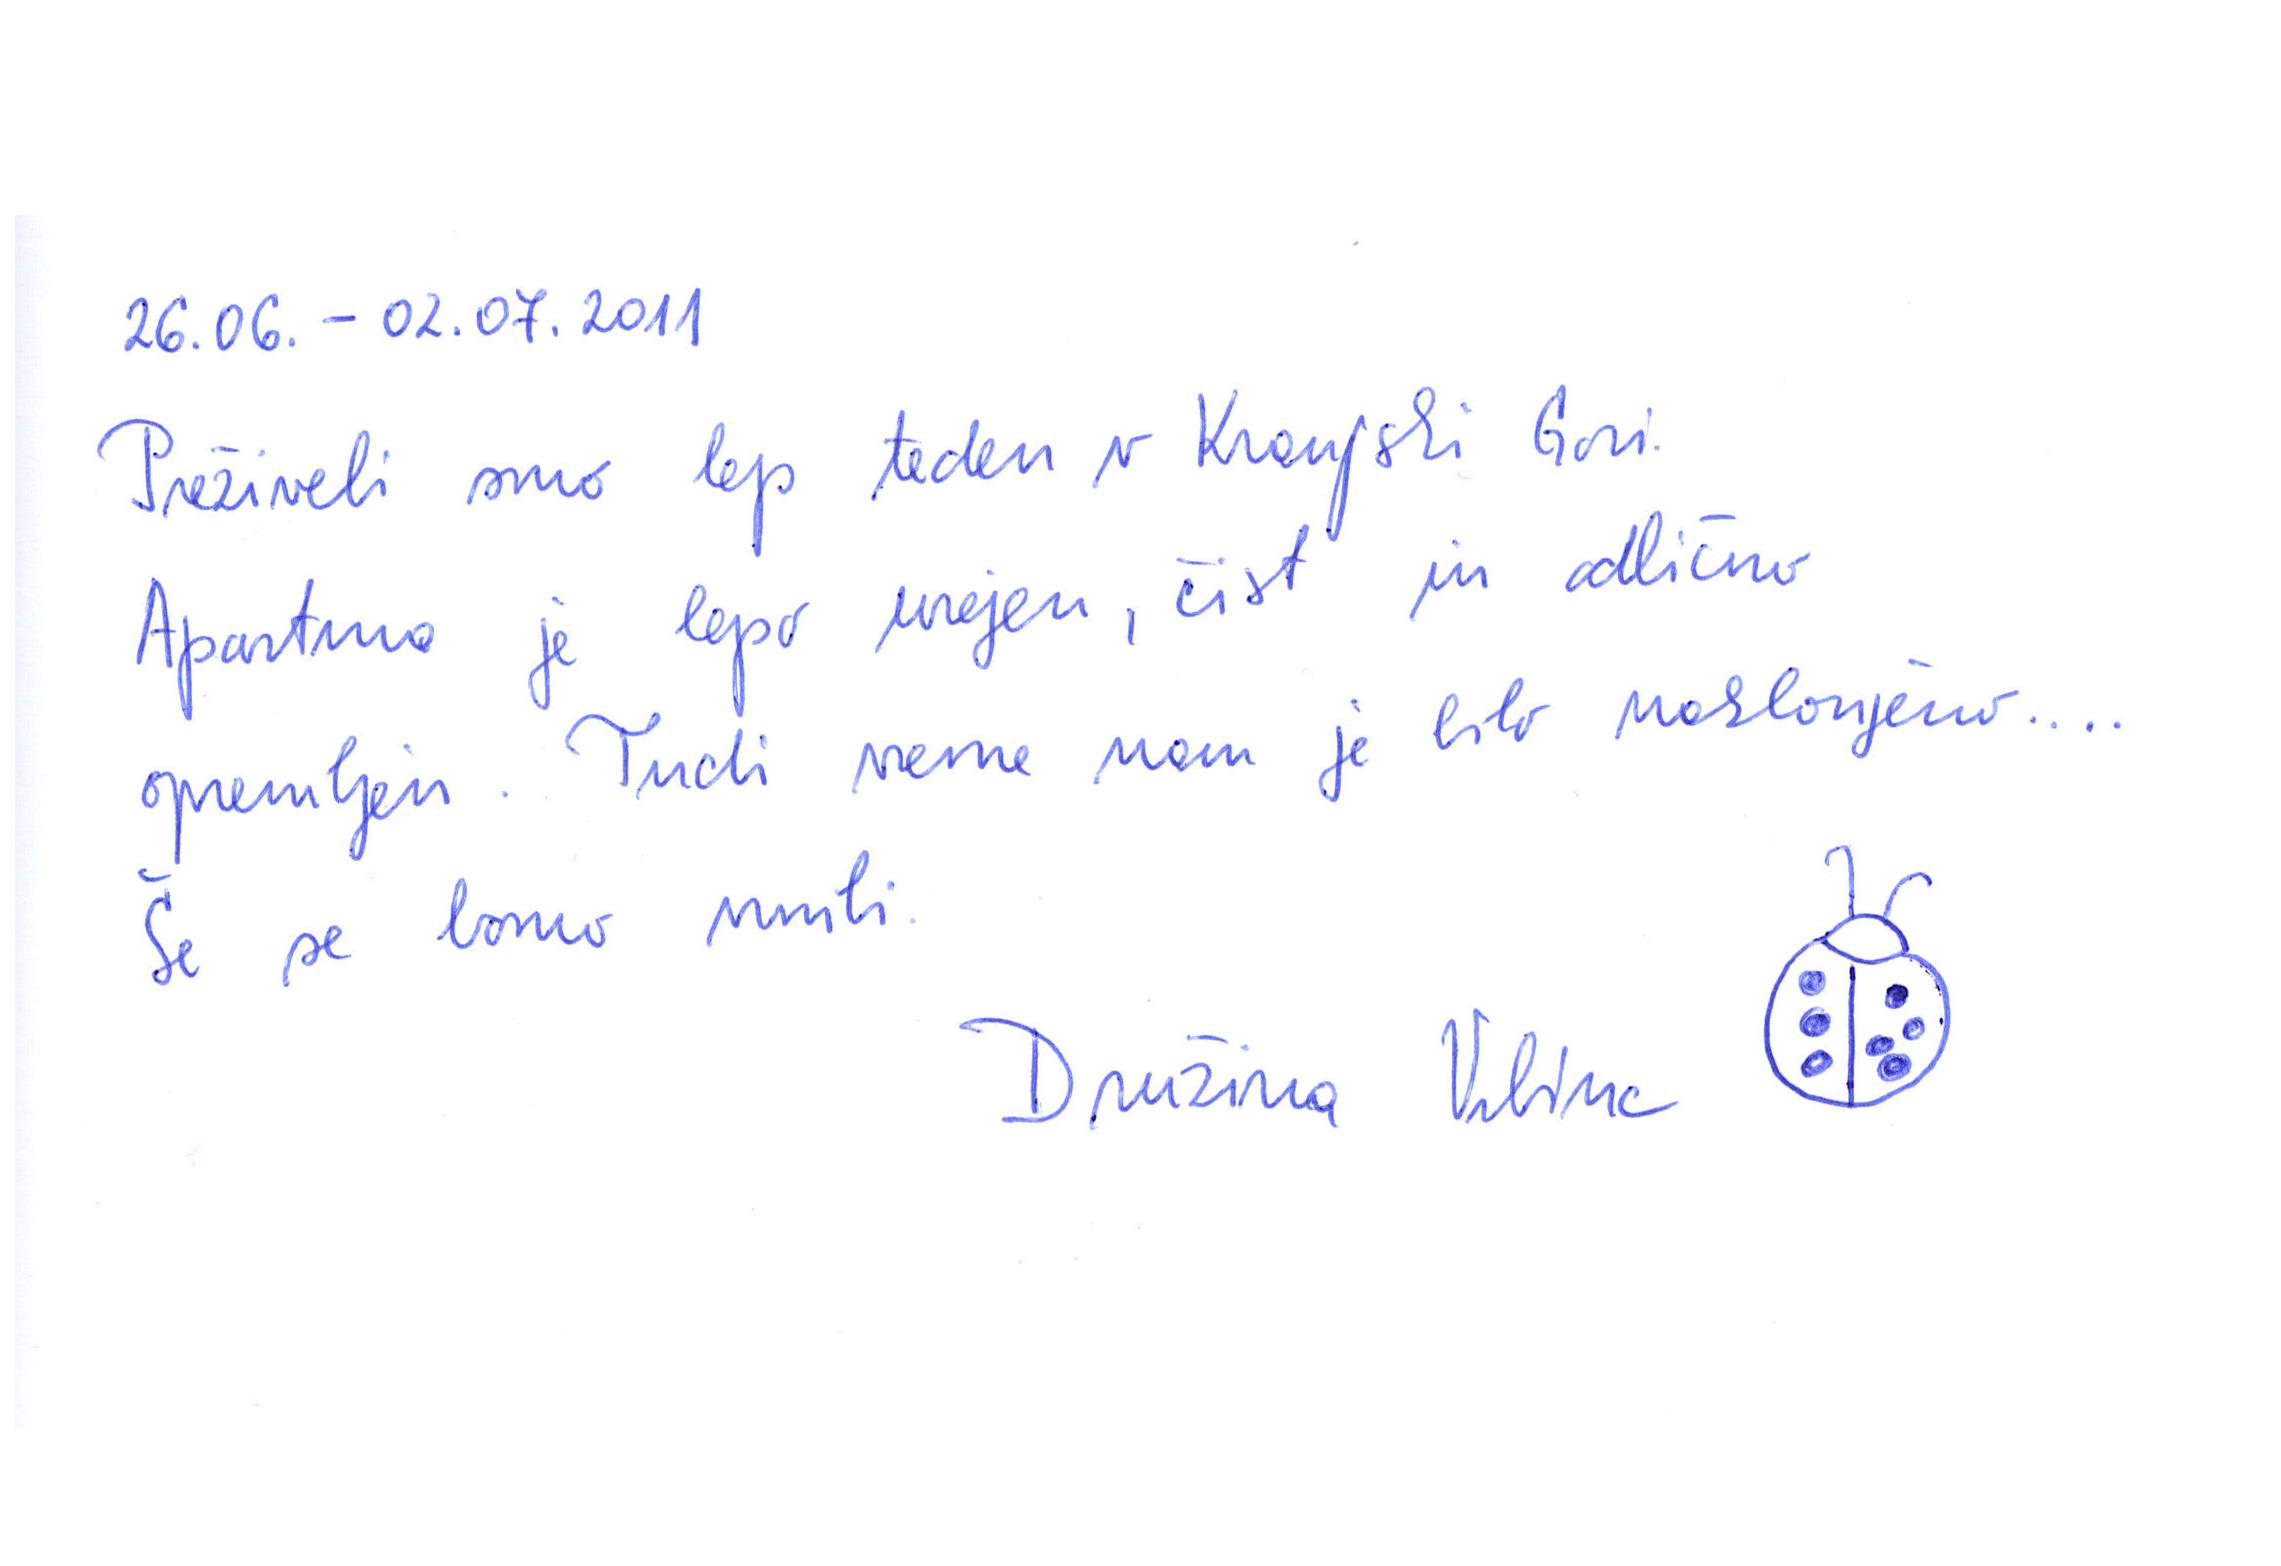 26.06. - 02.07.2011
Preživeli smo lep teden v Kranjski Gori.
Apartma je lepo urejen, čist in odlično
opremljen. Tudi vreme nam je bilo naklonjeno....
Še se bomo vrnili.
Družina